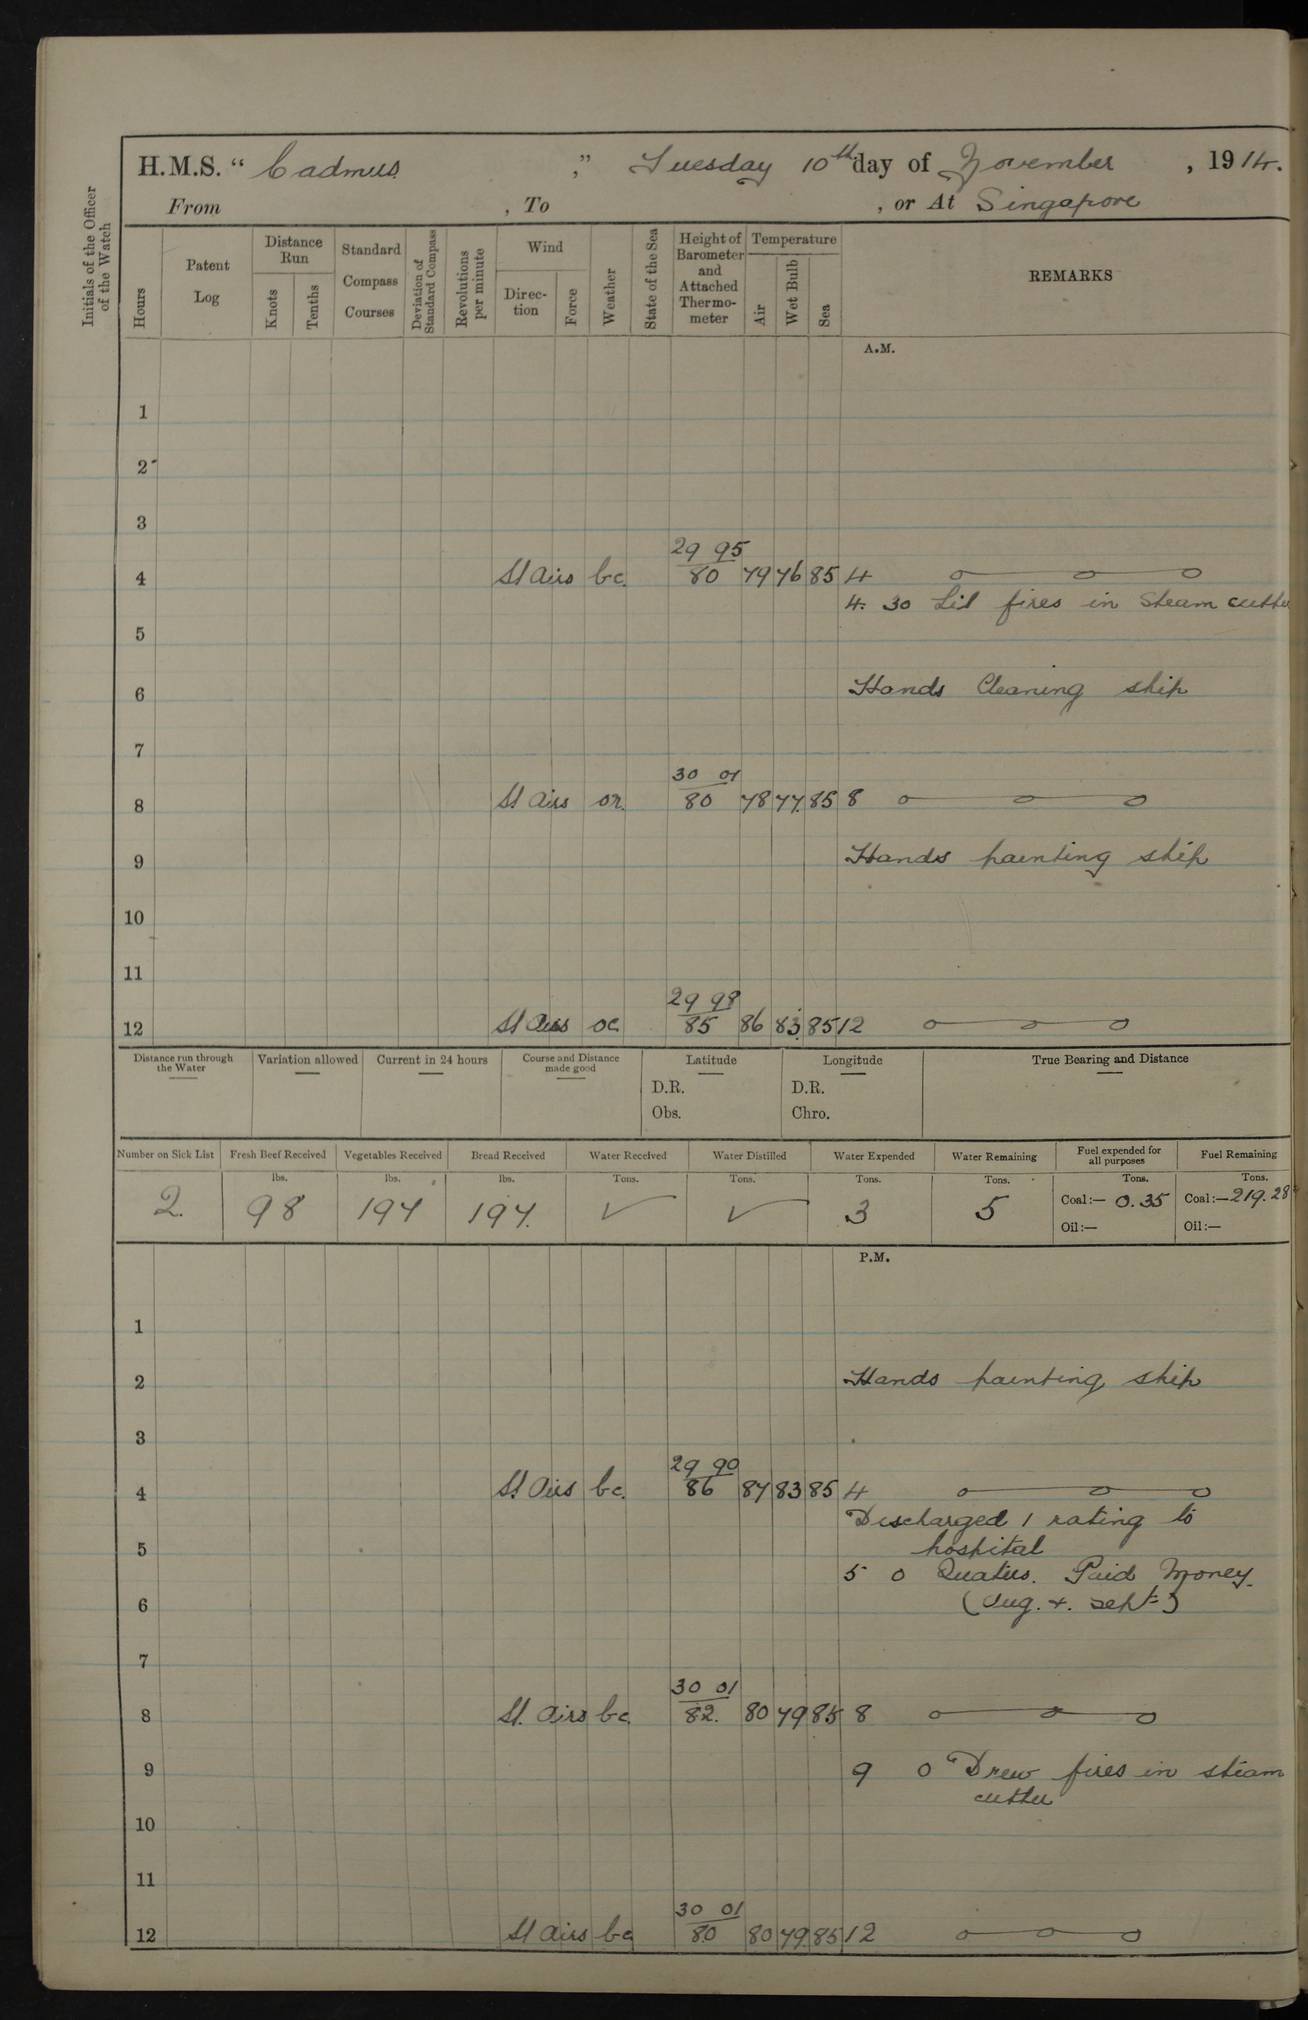 H.M.S. “ Cadmus ,” Tuesday 10th day of November , 1914.
From , To , or At Singapore
Initials of the Officer of the Watch
Hours
Patent Log
Distance Run
Knots
Tenths
Standard Compass Courses
Deviation of Standard Compass
Revolutions per minute
Wind
Direc-tion
Force
Weather
State of the Sea
Height of Barometer and Attached Thermo-meter
Temperature
Air
Wet Bulb
Sea
REMARKS
A.M.
1
2
3
29 95
4 Lt Airs bc. 80 79 76 85 4
4. 30 Lit fires in Steam cutter
5
6 Hands Cleaning ship
7
30 01
8 Lt Airs or. 80 78 77. 85 8
9 Hands painting ship
10
11
29 98
12 Lt Airs oc 85 86 83. 85 12
Distance run through the Water
Variation allowed
Current in 24 hours
Course and Distance made good
Latitude
D.R.
Obs.
Longitude
D.R.
Chro.
True Bearing and Distance
Number on Sick List Fresh Beef Received Vegetables Received Bread Received Water Received Water Distilled Water Expended Water Remaining Fuel expended for all purposes Fuel Remaining
lbs. lbs. lbs. Tons. Tons. Tons. Tons. Tons. Tons.
2. 98 197 197. ✓ ✓ 3 5 Coal:— 0.35 Coal:—219.28
Oil:— Oil:—
P.M.
1
2 Hands painting ship
3
29 90
4 Lt. Airs bc. 86 87 83 85 4
Discharged 1 rating to
5 hospital
5 0 Quarters. Paid Money.
6 (Aug. & Sept=)
7
30 01
8 Lt. Airs bc. 82. 80 79 85 8
9 9 0 Drew fires in steam
cutter
10
11
30 01
12 Lt Airs bc 80 80 79. 85 12